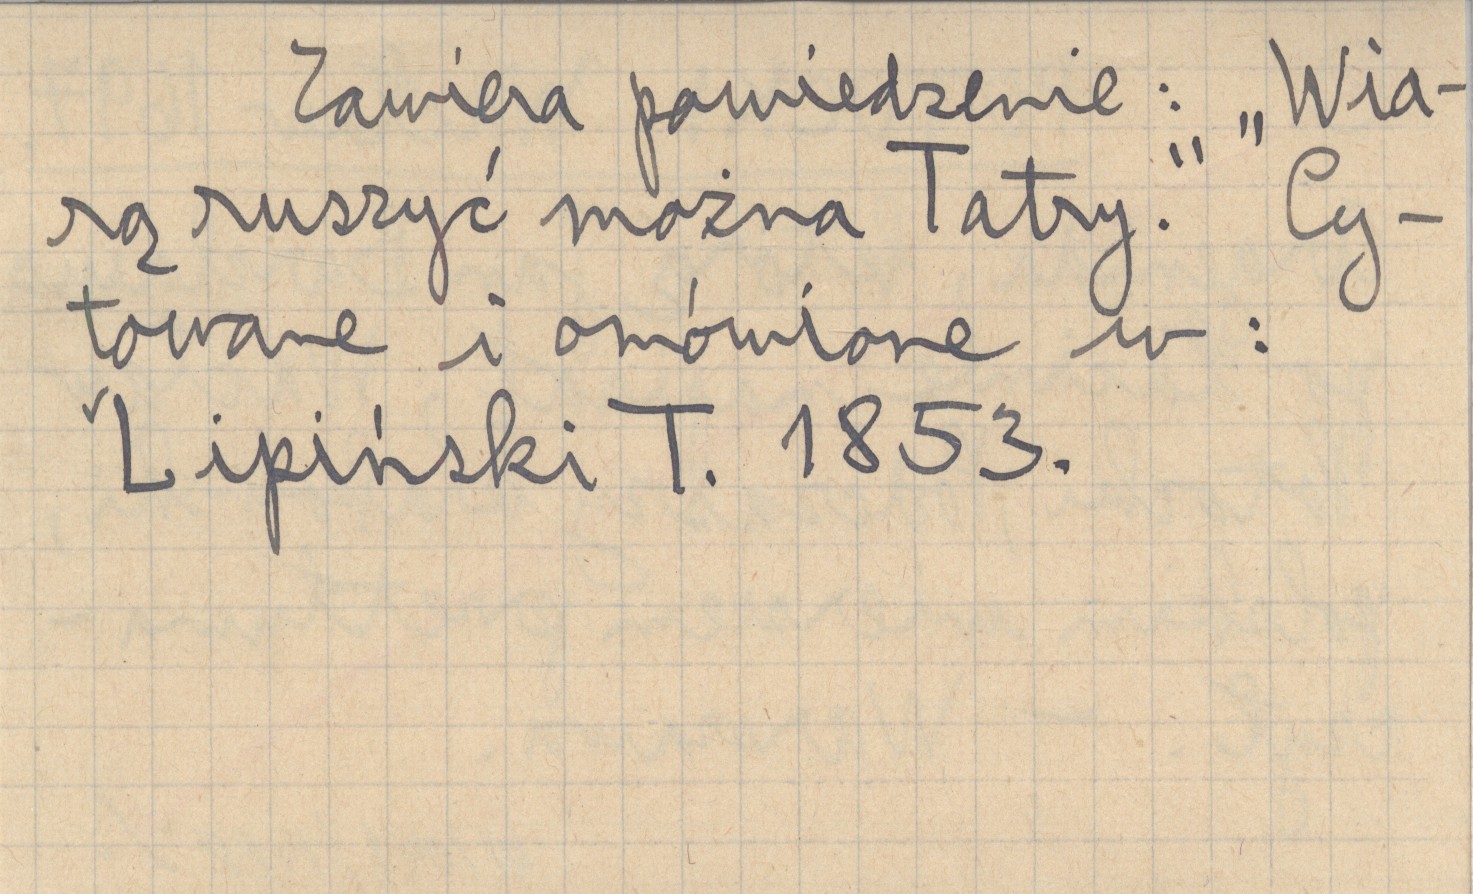 Zawiera powiedzenie: „Wia-
rą ruszyć można Tatry." Cy-
towane i omówione w:
Lipiński T. 1853.